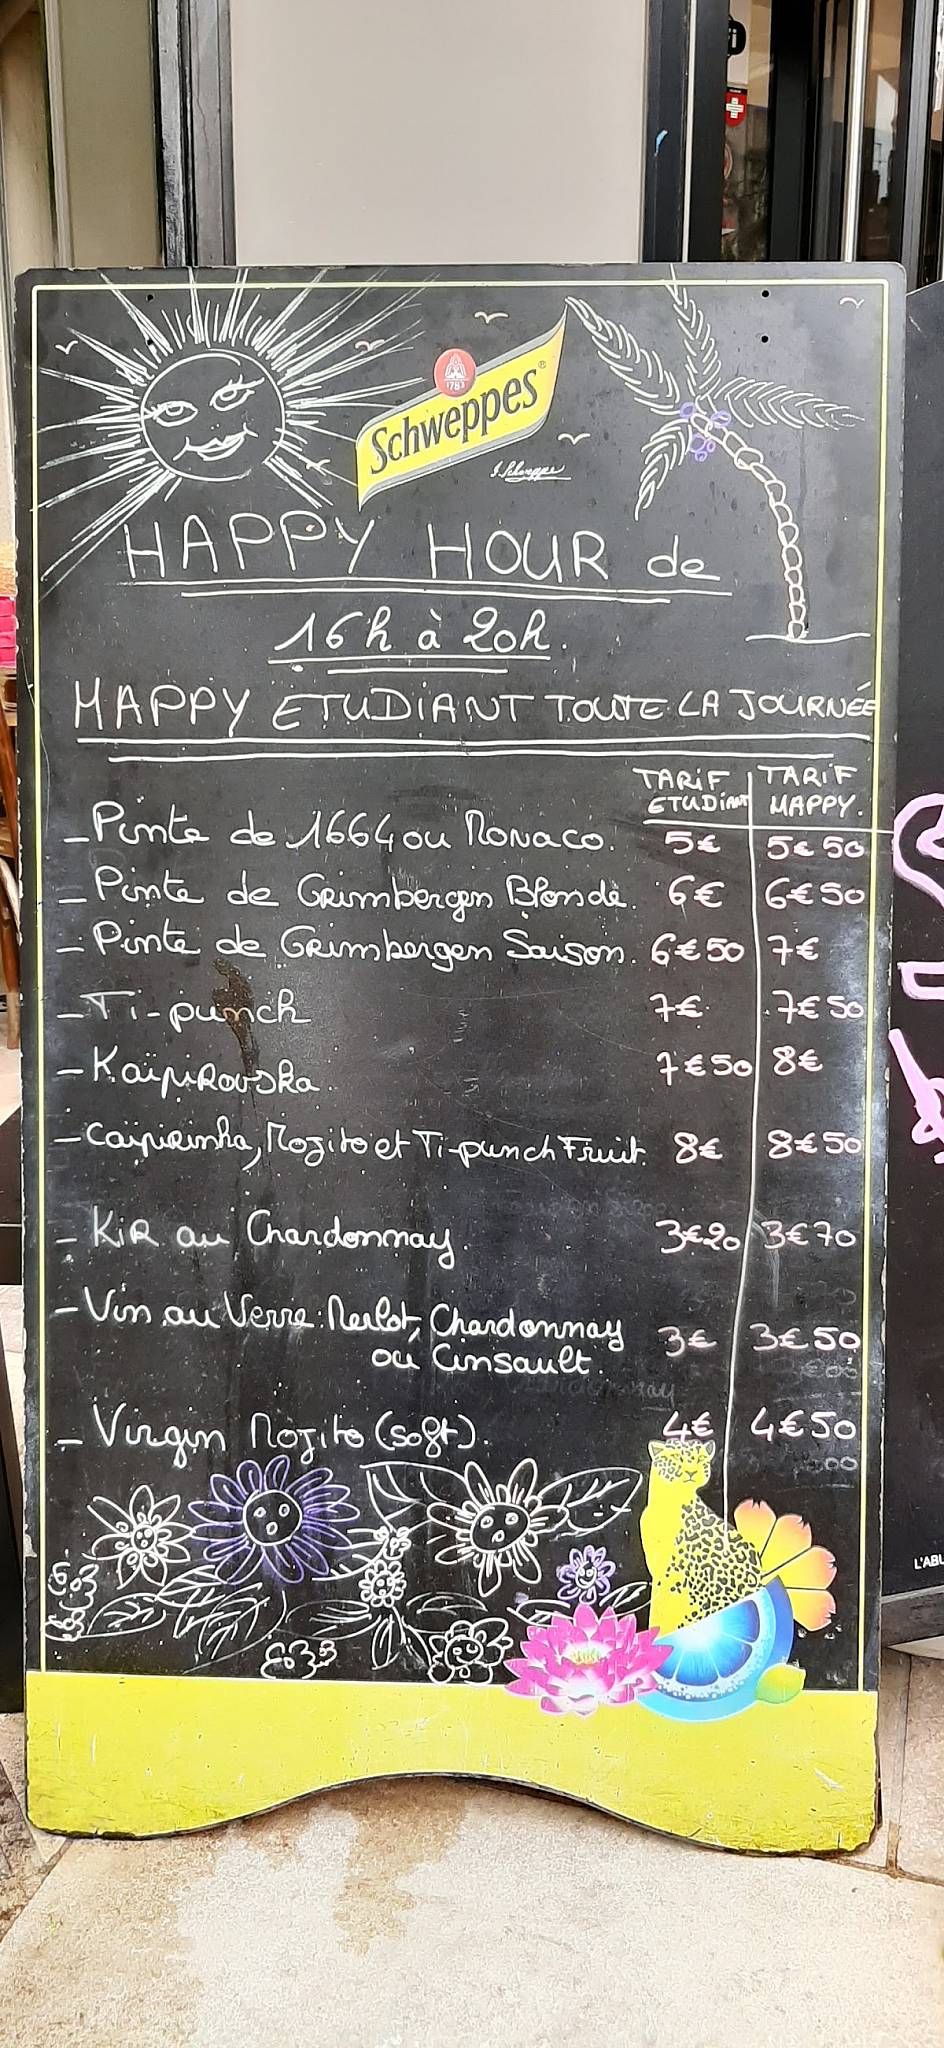 1783
Schweppes
J. Schweppe
HAPPY HOUR de
16h à 20h.
HAPPY ETUDIANT TOUTE LA JOURNÉE
TARIF ETUDIANT TARIF HAPPY.
- Pinte de 1664 ou Monaco. 5€ 5€50
- Pinte de Grimbergen Blonde. 6€ 6€50
- Pinte de Grimbergen Saison. 6€50 7€
- Ti-punch 7€ 7€50
- Kaïpirovska. 7€50 8€
- Caïpirinha, Mojito et Ti-punch Fruit. 8€ 8€50
- KiR au Chardonnay. 3€20 3€70
- Vin au Verre: Merlot, Chardonnay
ou Cinsault 3€ 3€50
- Virgin Mojito (soft). 4€ 4€50
L'ABU